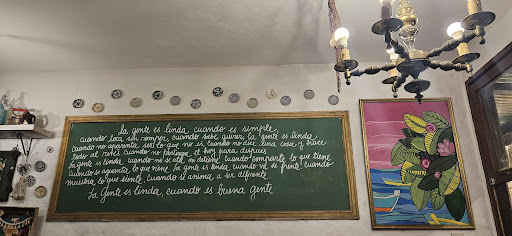 La gente es linda, cuando es simple,
cuando toca sin romper, cuando sabe querer, la gente es linda,
cuando no aparenta ser lo que no es, cuando no dice una cosa y hace
todo al revés, cuando no posterga, el hoy para después,
la gente es linda, cuando no te ata, ni detiene, cuando comparte lo que tiene
cuando se aguanta, lo que teme, la gente es linda, cuando va de frente, cuando
muestra, lo que siente, cuando se anima, a ser diferente.
La Gente es linda, cuando es buena gente